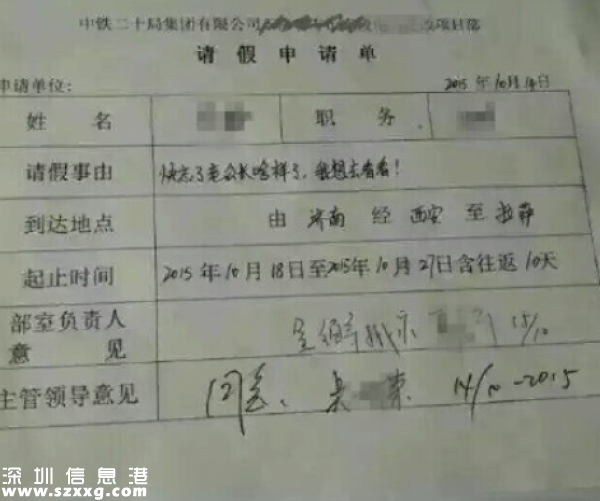 中铁二十局集团有限公司 项目部
请假申请单
申请单位： 2015年10月14日
姓名 职务
请假事由 快忘了老公长啥样了，我想去看看！
到达地点 由 济南 经 西安 至 拉萨
起止时间 2015年10月18日至2015年10月27日含往返10天
部室负责人意见 呈领导批示 15/10
主管领导意见 同意、 吴 東 14/10-2015
深圳信息港
www.szxxg.com